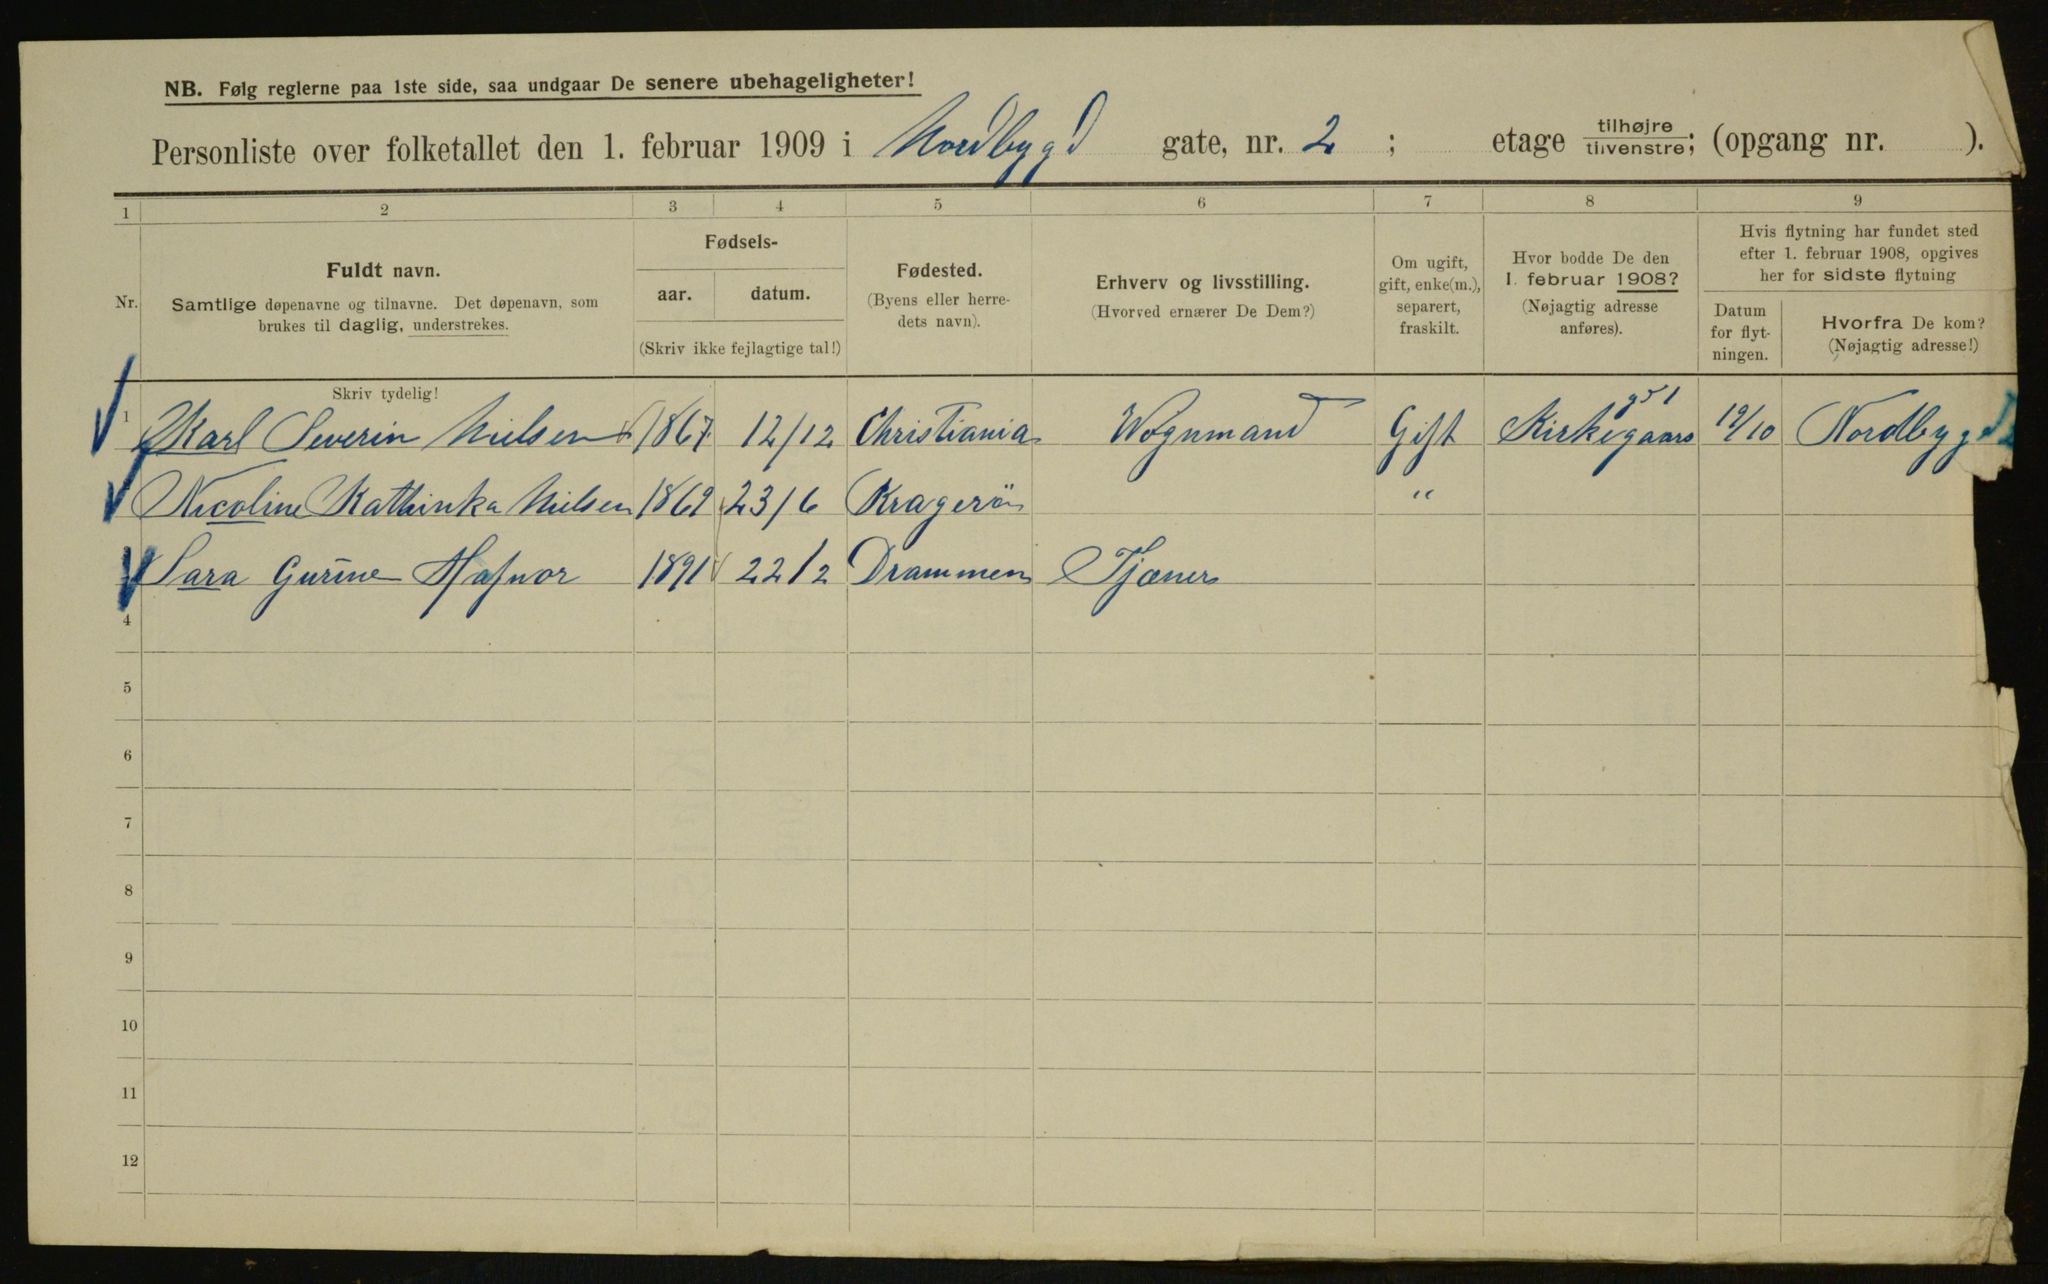 NB. Følg reglerne paa 1ste side, saa undgaar De senere ubehageligheter!
Personliste over folketallet den 1. februar 1909 i Nordbygd gate, nr. 2 ; etage tilhøjre tilvenstre; (opgang nr. ).
1 2 3 4 5 6 7 8 9
Nr.
Fuldt navn.
Samtlige døpenavne og tilnavne. Det døpenavn, som
brukes til daglig, understrekes.
Fødsels-
aar. datum.
(Skriv ikke fejlagtige tal!)
Fødested.
(Byens eller herre-
dets navn).
Erhverv og livsstilling.
(Hvorved ernærer De Dem?)
Om ugift,
gift, enke(m.),
separert,
fraskilt.
Hvor bodde De den
1. februar 1908?
(Nøjagtig adresse
anføres).
Hvis flytning har fundet sted
efter 1. februar 1908, opgives
her for sidste flytning
Datum
for flyt-
ningen.
Hvorfra De kom?
(Nøjagtig adresse!)
Skriv tydelig!
1 Karl Severin Nielsen 1867 12/12 Christiania Wognmand Gift Kirkegaars 19/10 Nordbygd 2
Nicoline Kathinka Nielsen 1869 23/6 Kragerö "
Sara Gurine Hafnor 1891 22/2 Drammen Tjæner
4
5
6
7
8
9
10
11
12